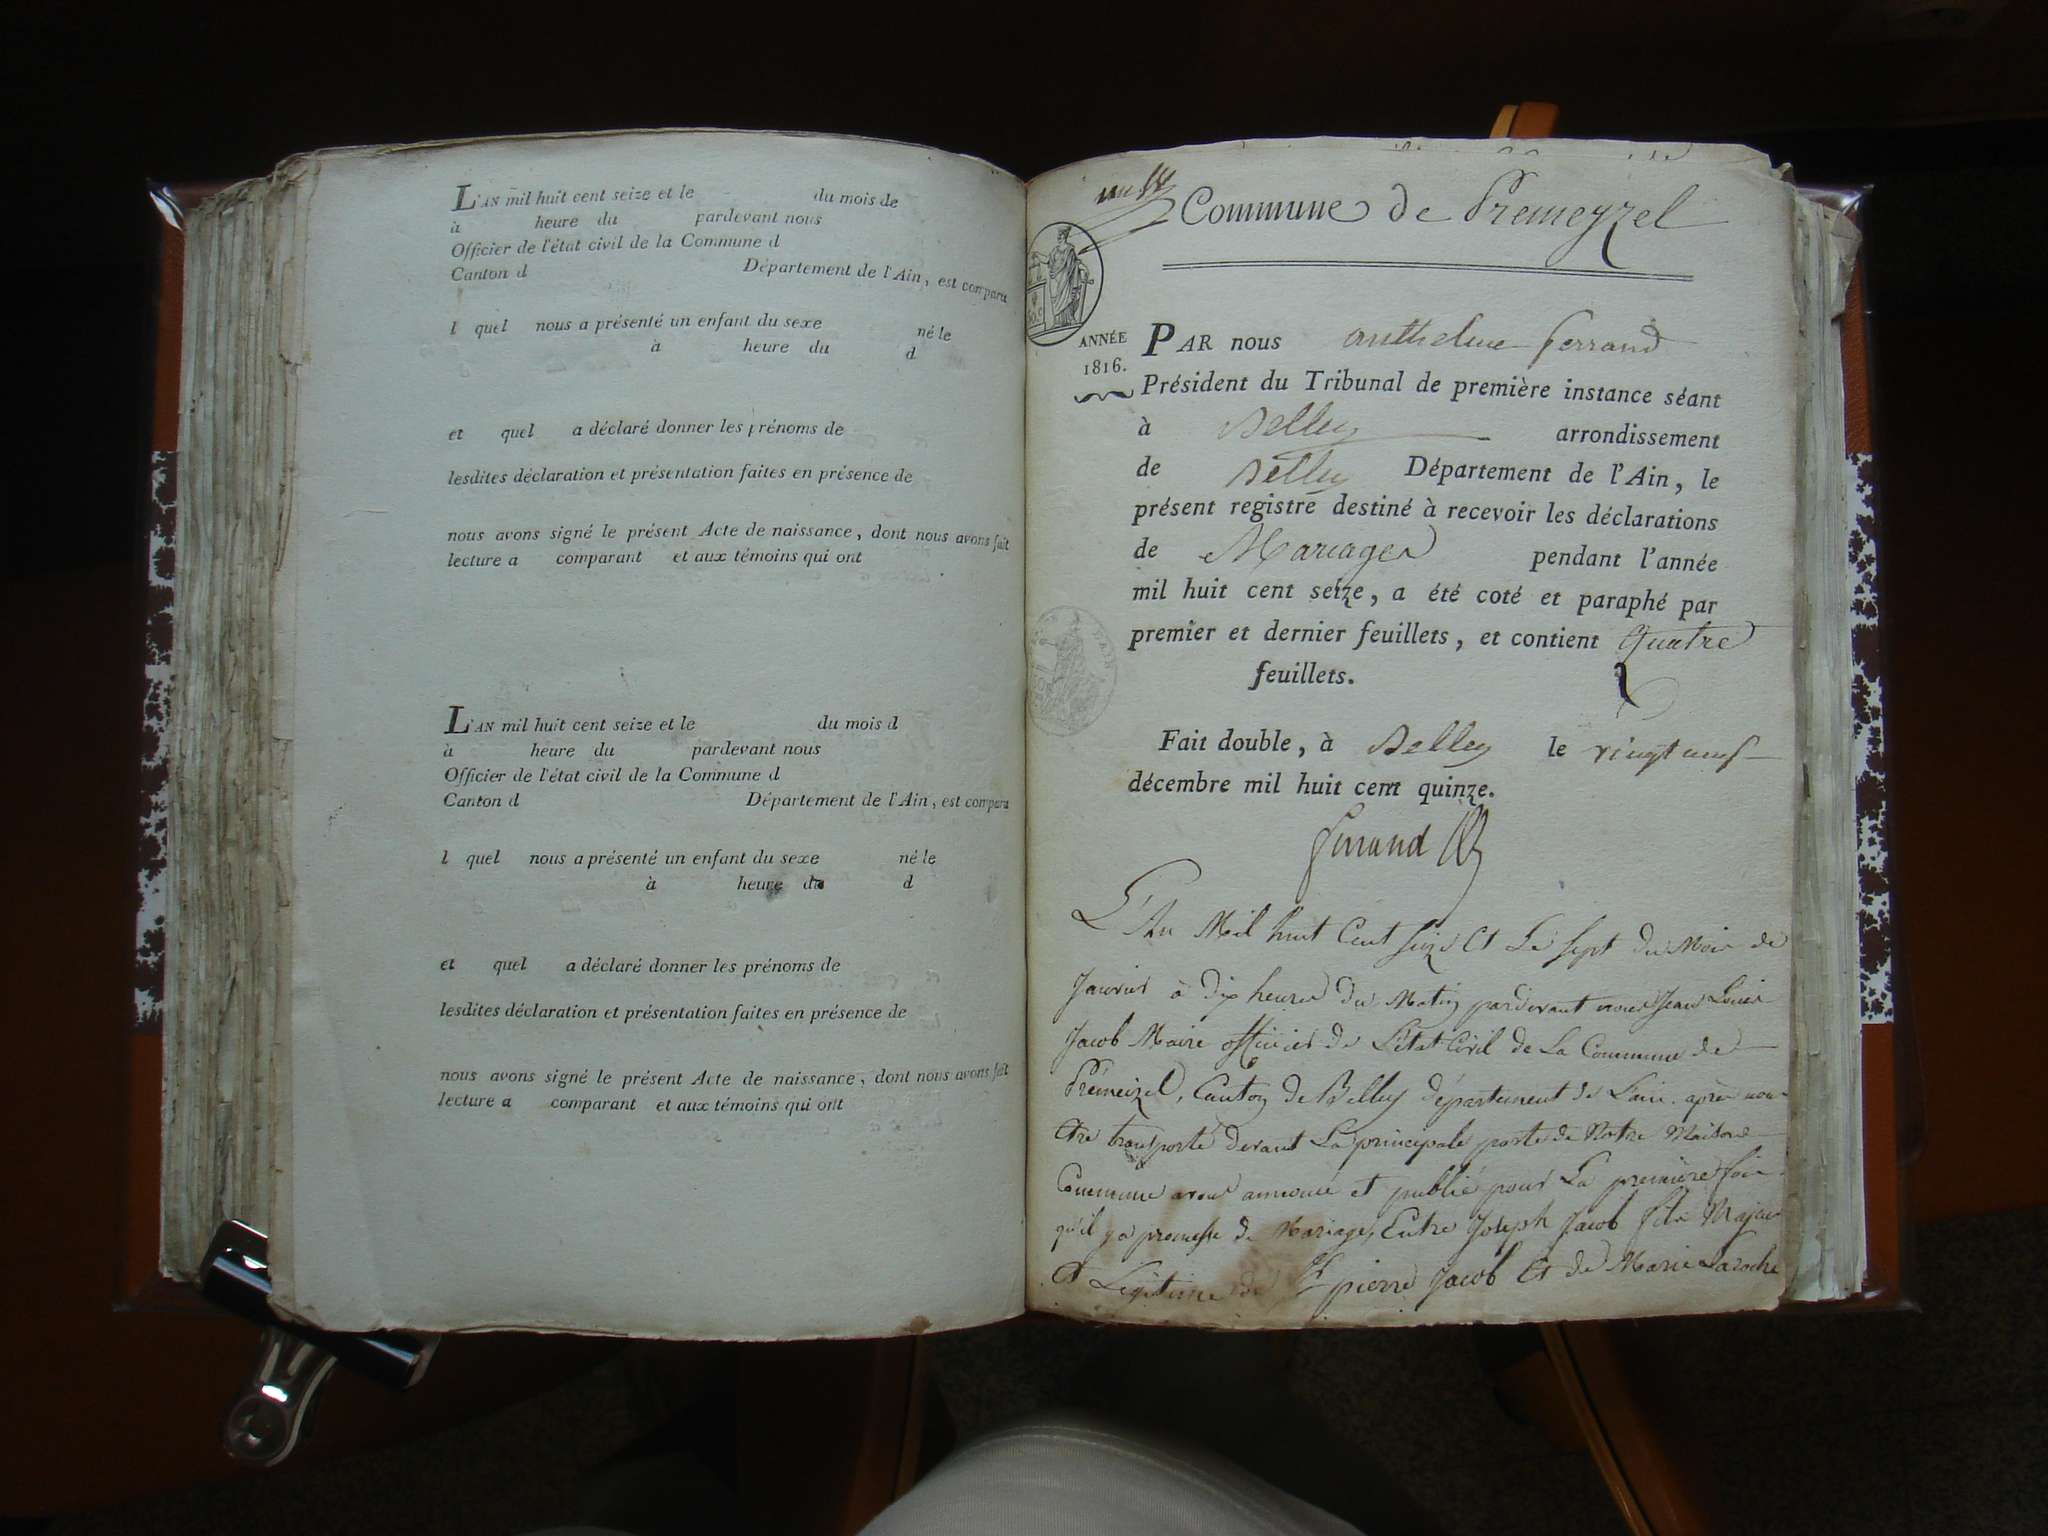 L'AN mil huit cent seize et le du mois de
à heure du pardevant nous
Officier de l'état civil de la Commune d
Canton d Département de l'Ain, est comparu
l quel nous a présenté un enfant du sexe né le
à heure du d
et quel a déclaré donner les prénoms de
lesdites déclaration et présentation faites en présence de
nous avons signé le présent Acte de naissance, dont nous avons fait
lecture a comparant et aux témoins qui ont
L'AN mil huit cent seize et le du mois d
à heure du pardevant nous
Officier de l'état civil de la Commune d
Canton d Département de l'Ain, est comparu
l quel nous a présenté un enfant du sexe né le
à heure du d
et quel a déclaré donner les prénoms de
lesdites déclaration et présentation faites en présence de
nous avons signé le présent Acte de naissance, dont nous avons fait
lecture a comparant et aux témoins qui ont
Commune de Premeyzel
ANNÉE
1816.
PAR nous anthelme ferrand
Président du Tribunal de première instance séant
à Belley arrondissement
de Belley Département de l'Ain, le
présent registre destiné à recevoir les déclarations
de Mariages pendant l'année
mil huit cent seize, a été coté et paraphé par
premier et dernier feuillets, et contient quatre
feuillets.
Fait double, à Belley le vingt neuf
décembre mil huit cent quinze.
ferrand
L'An Mil huit Cent seize Et Le sept du Mois de
Janvier à dix heures du Matin pardevant nous Jean Louis
Jacob Maire officier de L'état Civil de La Commune de
Prémeizel, Canton de Belley département de Lain. après nous
être transporté devant La principale porte de Notre Maison
Commune avons annoncé et publié pour La première fois
qu'il y a promesse de Mariage, Entre Joseph Jacob fils Majeur
Et Légitime de pierre Jacob Et de Marie Laroche